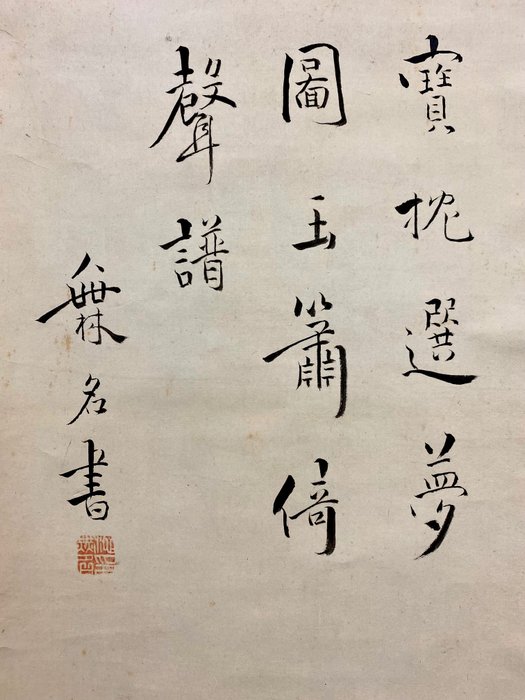 寶枕選夢
圖玉簫倚
聲譜
無名書